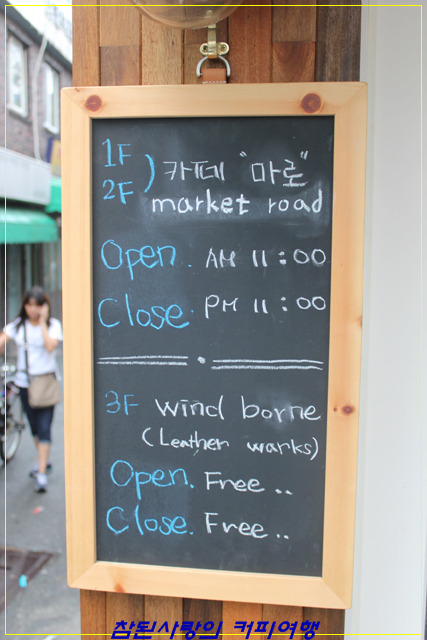 1F
2F ) 카페 "마로"
market road
Open. AM 11:00
Close. PM 11:00
3F wind borne
(Leather warks)
Open. Free ..
Close. Free ..
참된사랑의 커피여행